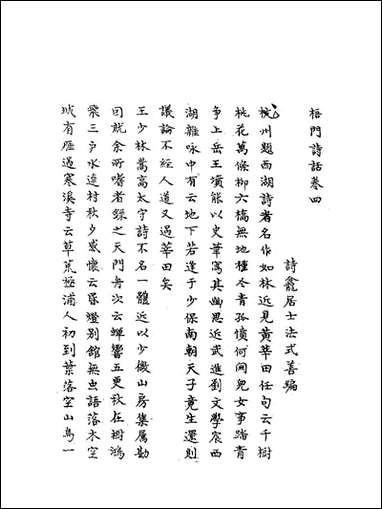 梧門詩話卷四
詩龕居士法式善編
杭州題西湖詩著名作如林近見黃莘田任句云千樹
桃花萬條柳六橋無地種冬青孤憤何關兒女事踏青
爭上岳王墳能以史筆寫其幽思近武進劉文學宸西
湖雜咏中有云地下若逢于少保南朝天子竟生還則
議論不經人道又過莘田矣
王少林嵩高太守詩不名一體近以少微山房集属勘
回就余所嗜者錄之天門舟次云蟬響五更秋在樹鴻
飛三户水連村秋夕感懷云昏燈别館無虫語落木空
城有雁過寒溪寺云草荒極浦人初到葉落空山鳥一